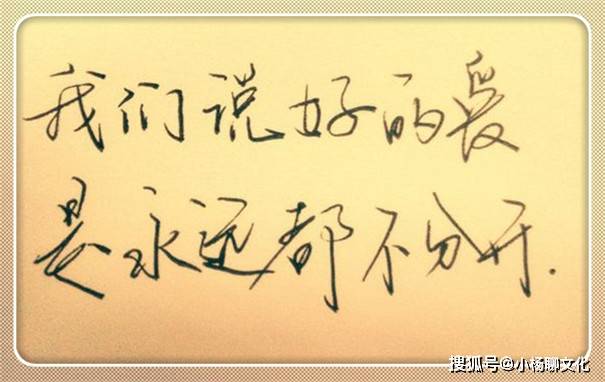 我们说好的爱
是永远都不分开.
搜狐号@小杨聊文化